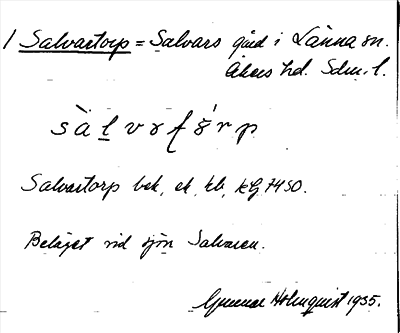 1 Salvartorp = Salvars gård i Länna sn.
Åkers hd. Sdm. l.
Salvartorp bek, ek, kb, kG 7450.
Beläget vid sjön Salvaren.
Gunnar Holmquist 1935.